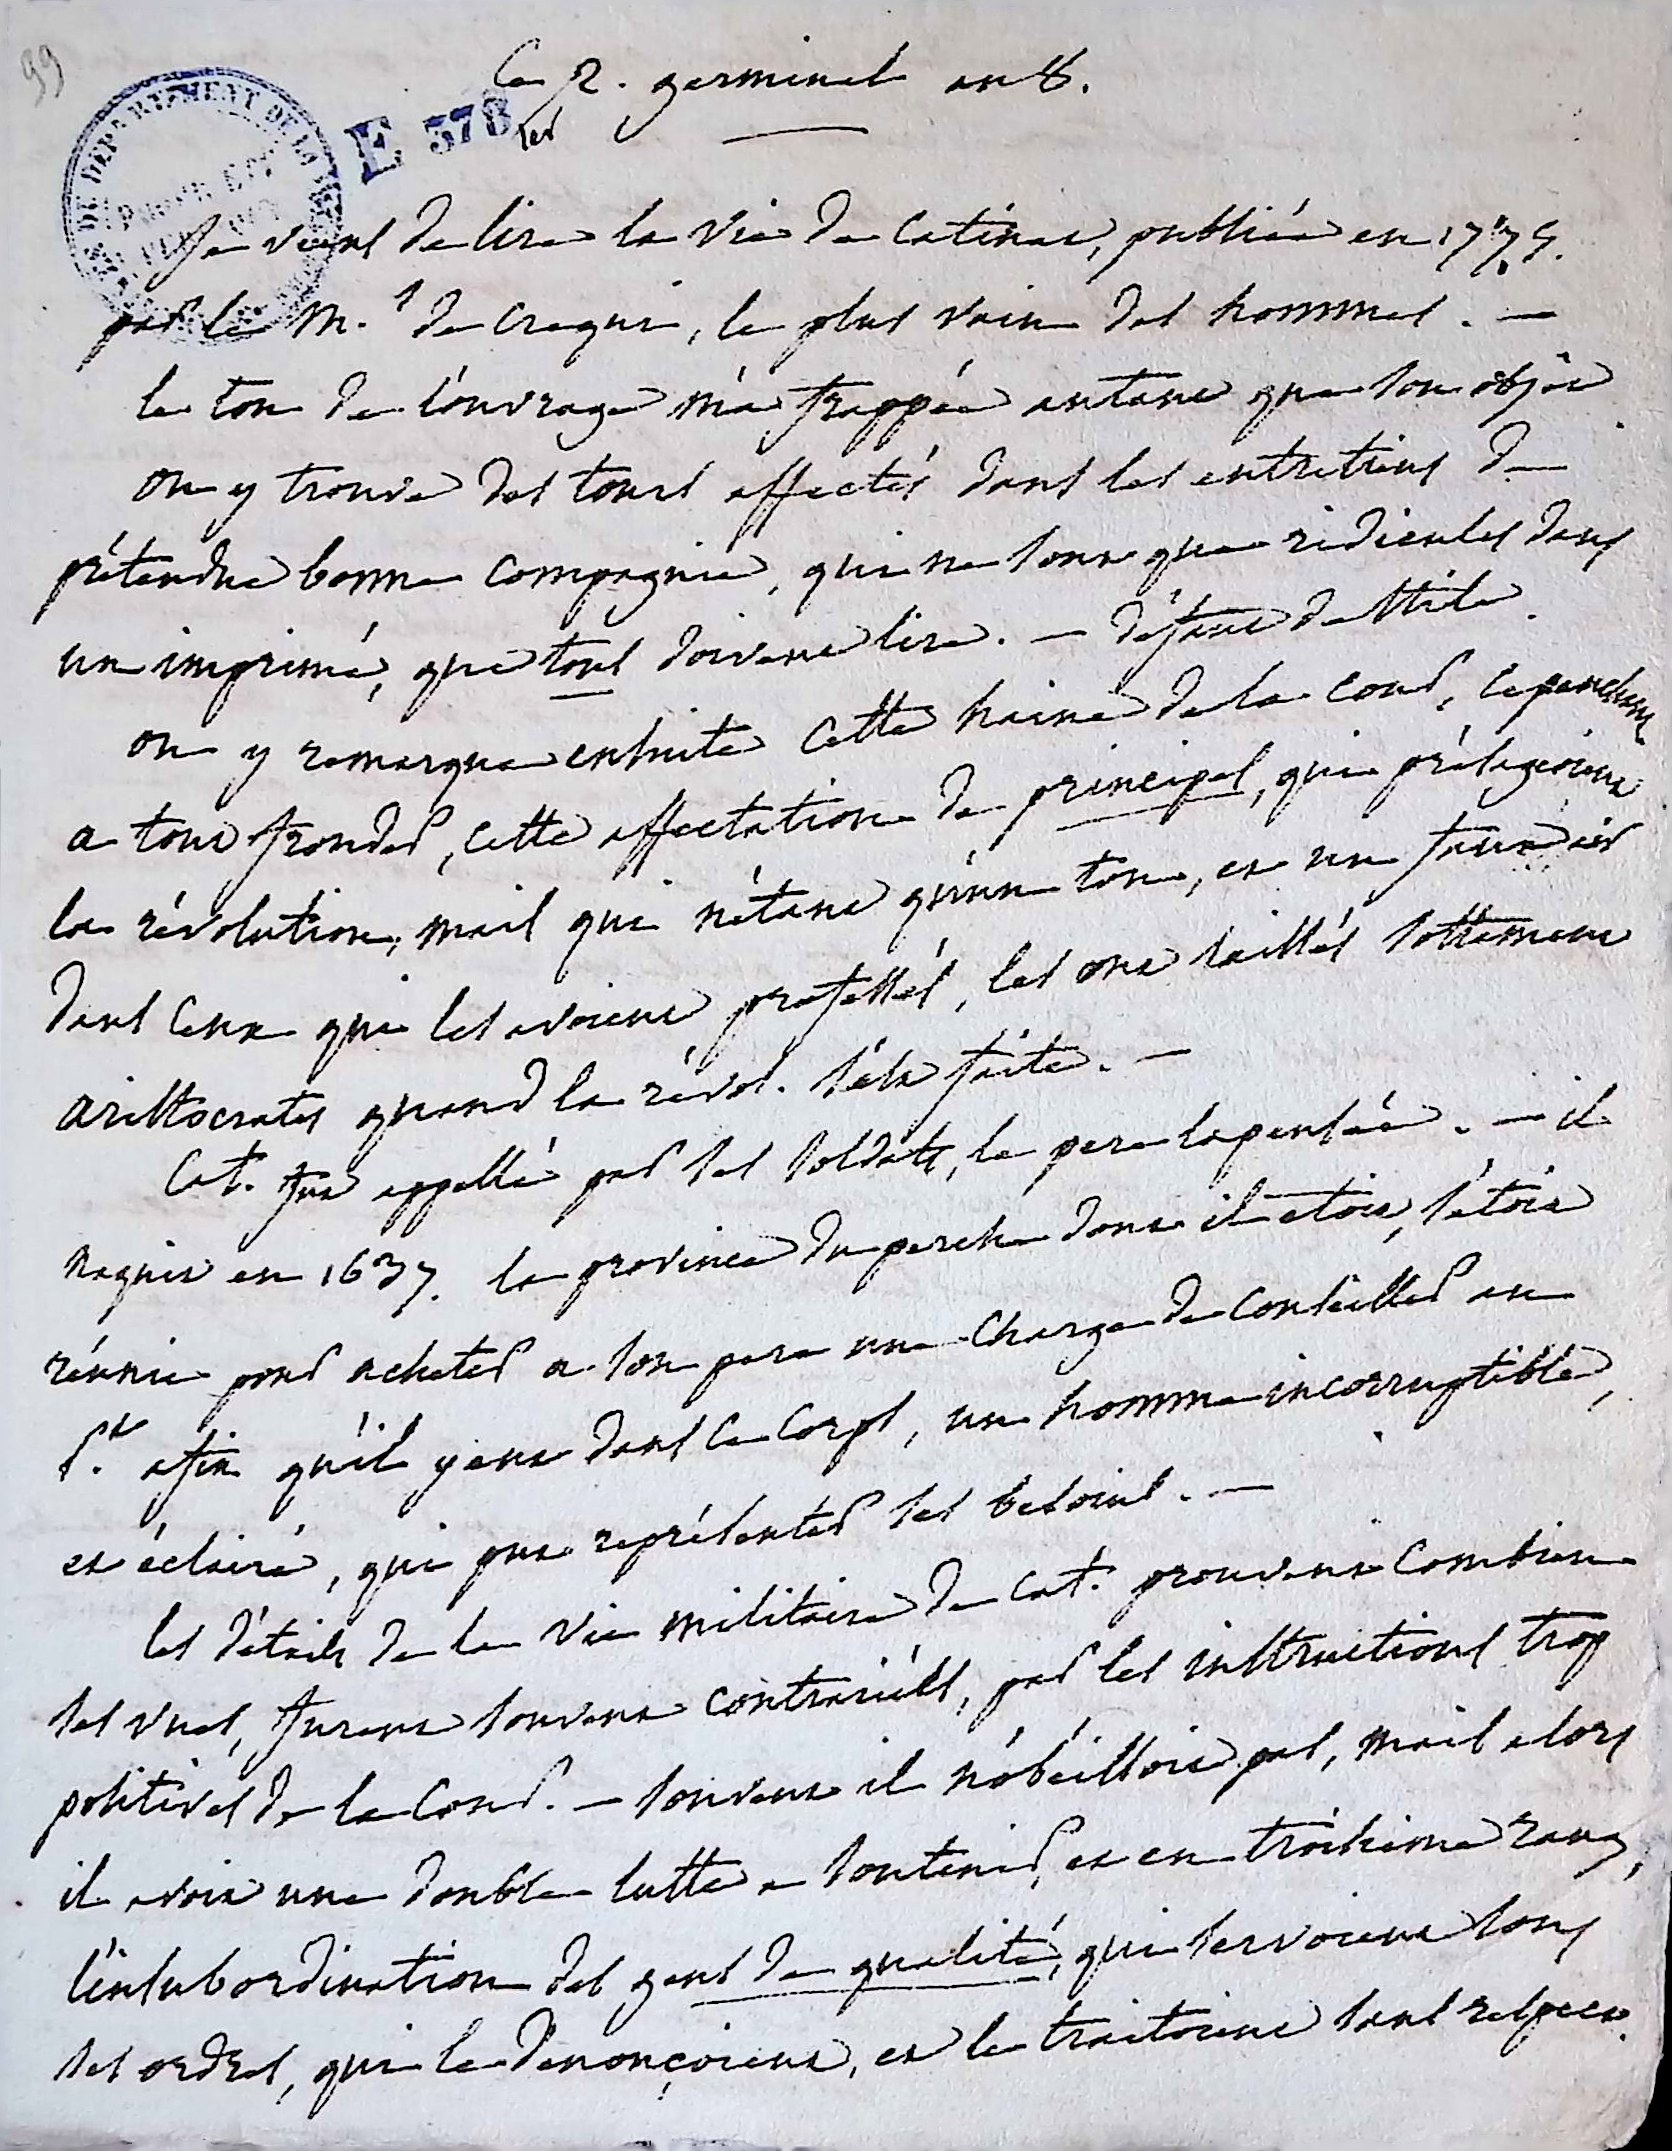 99
Ce 2. germinal an 8.
E 378
ter
Je viens de lire la vie de Catinat, publiée en 1775.
par le M.is de Crequi, le plus vain des hommes. —
le ton de l'ouvrage m'a frappée autant que son objet
on y trouve des tours affectés dans les entretiens de
prétendue bonne compagnie, qui ne sont que ridicules dans
un imprimé, que tous doivent lire. — défaut de stile.
on y remarque ensuite cette haine de la cour, ce penchant
a tout fronder, cette affectation de principes, qui présageoient
la révolution, mais qui n'étant qu'un ton, et un faux air
dans ceux qui les avoient professés, les ont laissés sottement
aristocrates quand la révol. s'est faite. —
Cat. fut appellé par ses soldats, le pere la pensée. — il
naquit en 1637. la province du perche dont il etoit, s'étoit
réunie pour acheter a son pere une charge de conseiller au
P.t afin qu'il y eut dans ce corps, un homme incorruptible,
et éclairé, qui put représenter ses besoins. —
les détails de la vie militaire de Cat. prouvent combien
ses vues, furent souvent contrariées, par les instructions trop
positives de la Cour. — souvent il n'obéissoit pas, mais alors
il avoit une double lutte a soutenir, et en troisieme rang,
l'insubordination des gens de qualité, qui servoient sous
ses ordres, qui le denonçoient, et le traitoient sans respect.